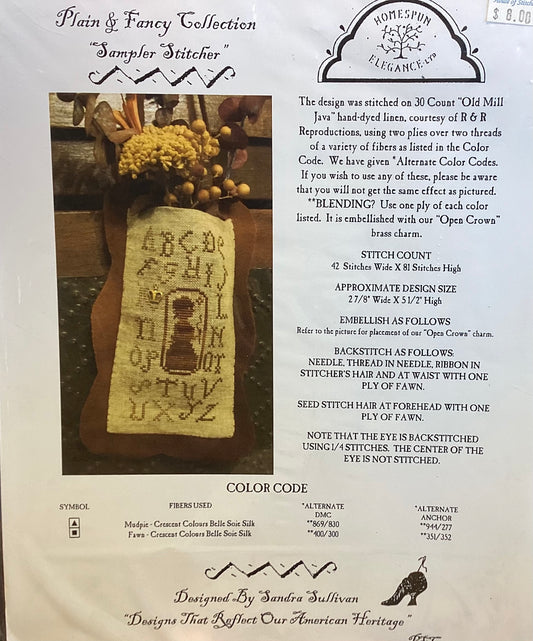 Plain & Fancy Collection
"Sampler Stitcher"
HOMESPUN
ELEGANCE, LTD
$ 6.00
The design was stitched on 30 Count "Old Mill
Java" hand-dyed linen, courtesy of R & R
Reproductions, using two plies over two threads
of a variety of fibers as listed in the Color
Code. We have given *Alternate Color Codes.
If you wish to use any of these, please be aware
that you will not get the same effect as pictured.
**BLENDING? Use one ply of each color
listed. It is embellished with our "Open Crown"
brass charm.
STITCH COUNT
42 Stitches Wide X 81 Stitches High
APPROXIMATE DESIGN SIZE
2 7/8" Wide X 5 1/2" High
EMBELLISH AS FOLLOWS
Refer to the picture for placement of our "Open Crown" charm.
BACKSTITCH AS FOLLOWS:
NEEDLE, THREAD IN NEEDLE, RIBBON IN
STITCHER'S HAIR AND AT WAIST WITH ONE
PLY OF FAWN.
SEED STITCH HAIR AT FOREHEAD WITH ONE
PLY OF FAWN.
NOTE THAT THE EYE IS BACKSTITCHED
USING 1/4 STITCHES. THE CENTER OF THE
EYE IS NOT STITCHED.
COLOR CODE
SYMBOL FIBERS USED *ALTERNATE DMC *ALTERNATE ANCHOR
▲ Mudpie - Crescent Colours Belle Soie Silk **869/830 **944/277
■ Fawn - Crescent Colours Belle Soie Silk **400/300 **351/352
Designed By Sandra Sullivan
"Designs That Reflect Our American Heritage"